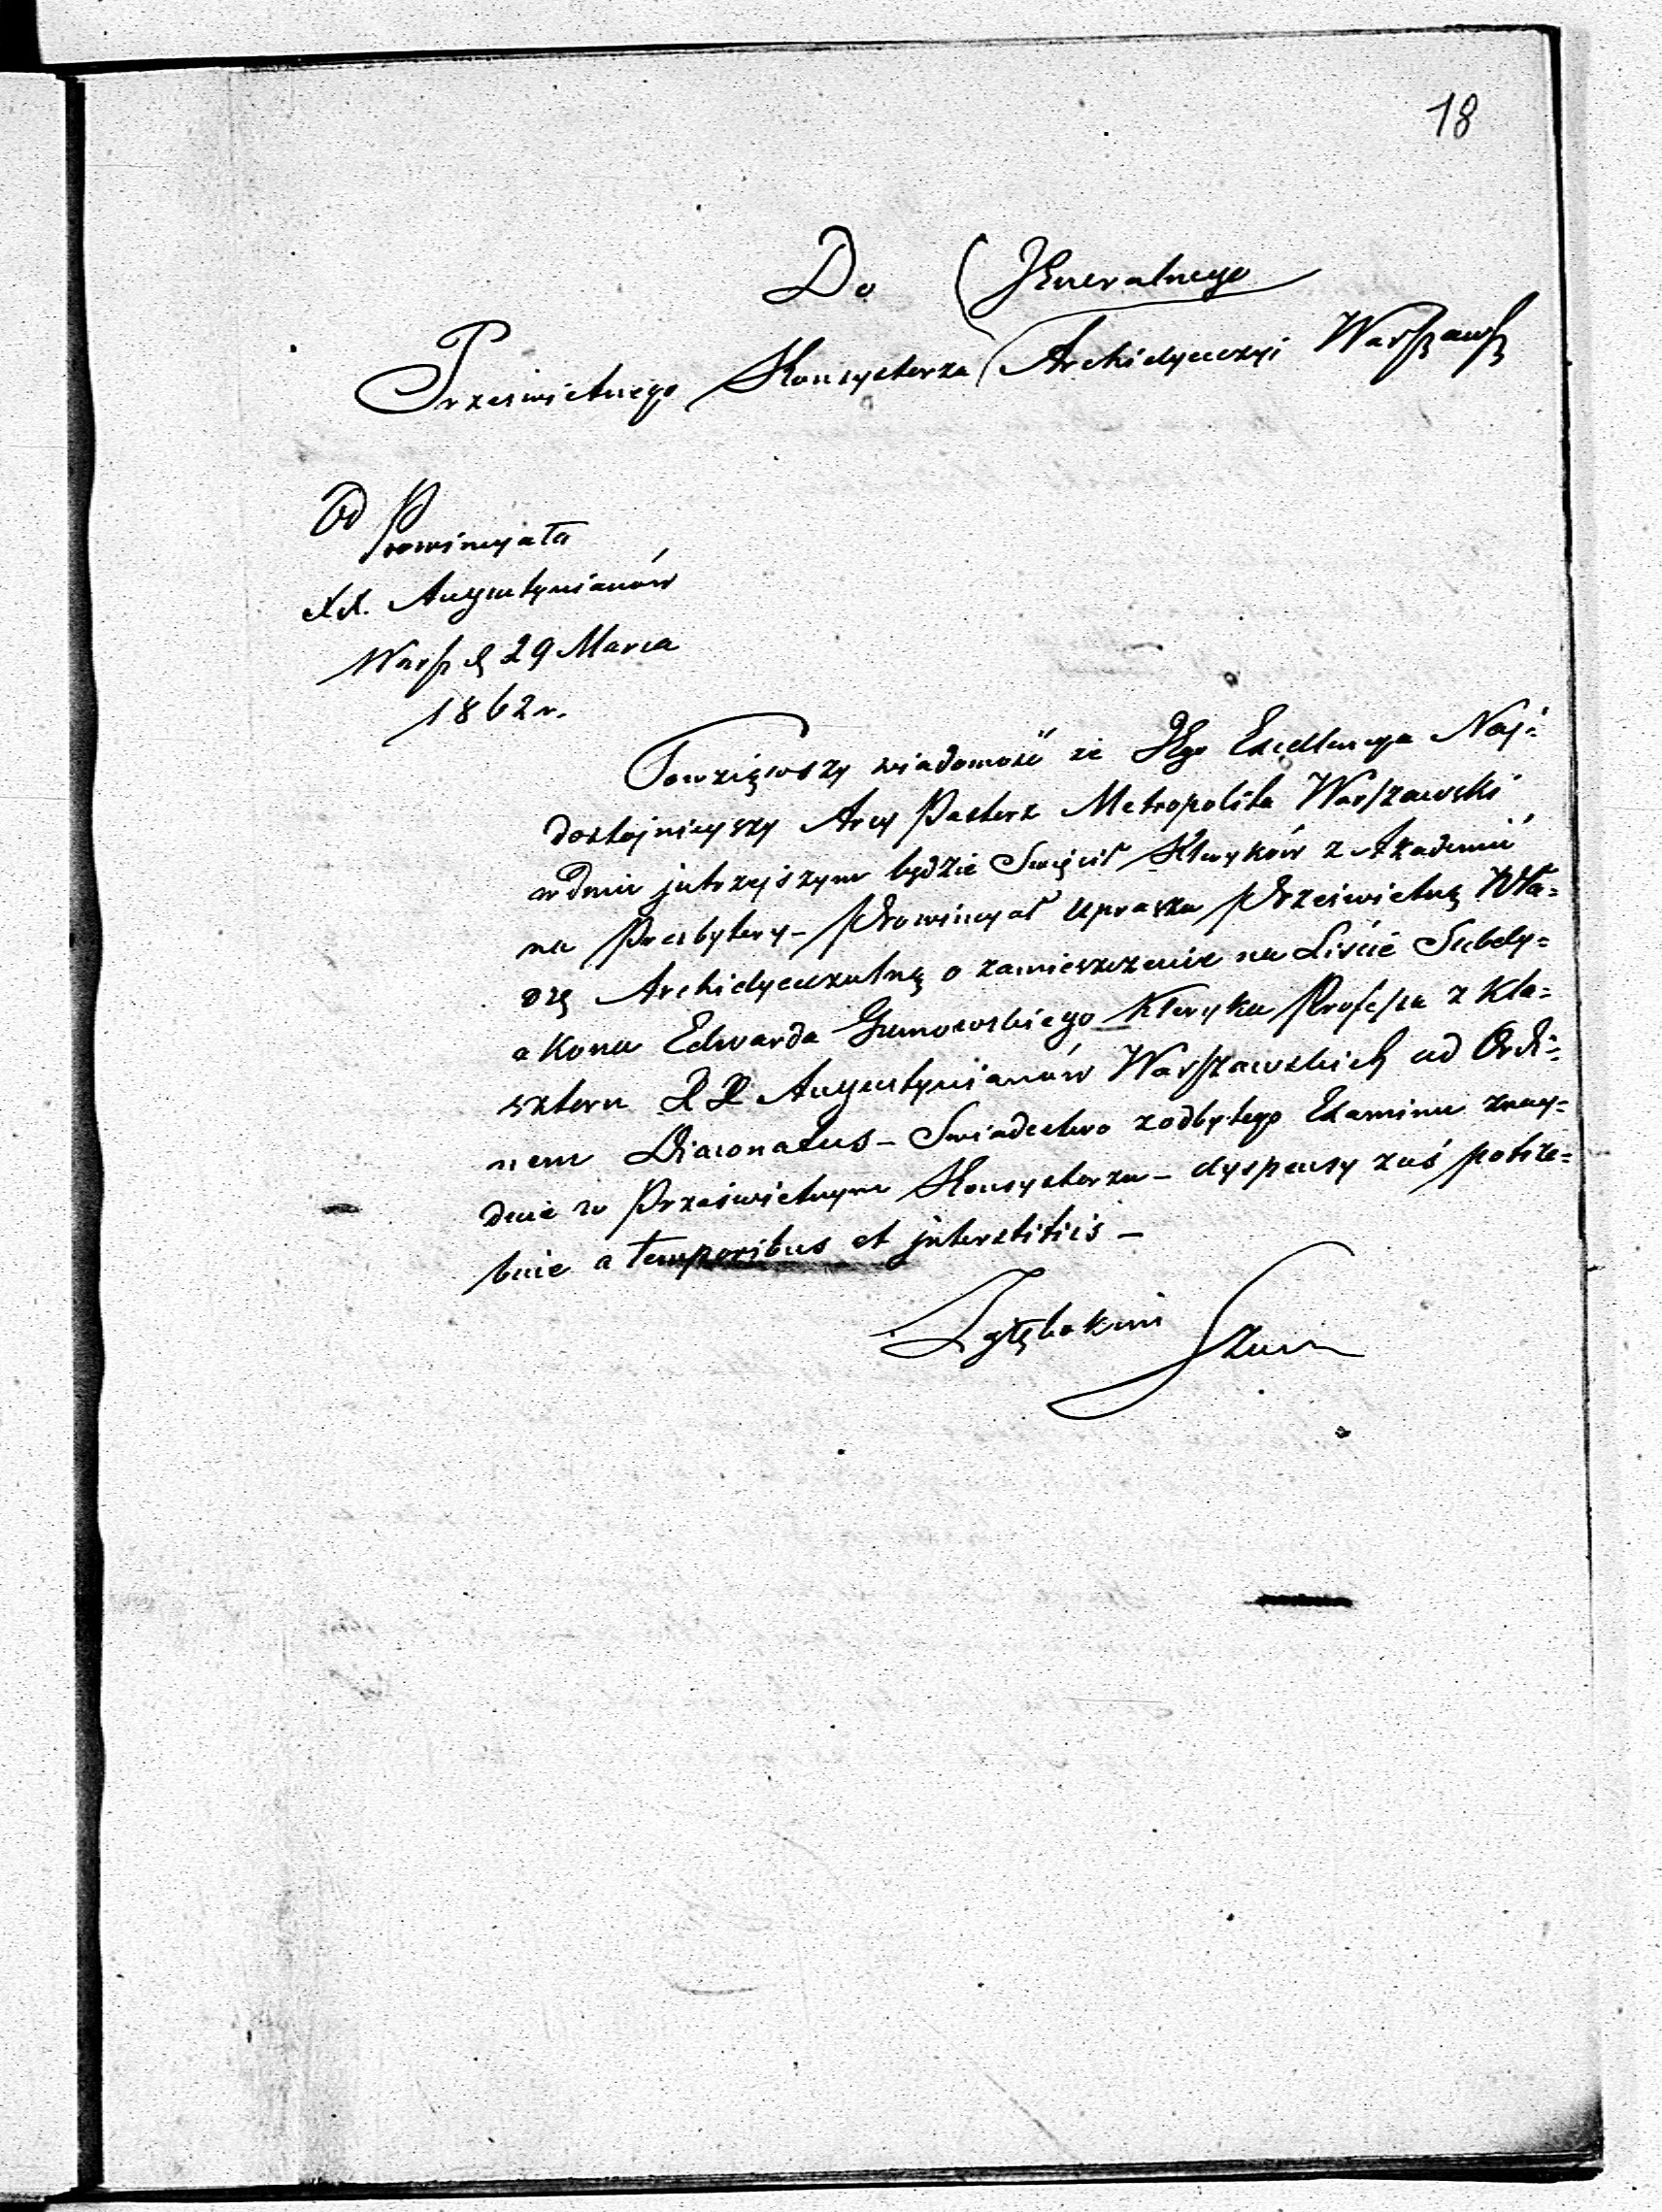 18
Do Jeneralnego
Prześwietnego Konsystorza Archidyecezyi Warszaws
Od Prowincyała
XX. Augustynianów
Warsz d 29 Marca
1862 r.
Powziąwszy wiadomość że JEgo Excellencya Naj=
dostojnieyszy Arcy Pasterz Metropolita Warszawski
w dniu jutrzejszym będzie Swięcił Kleryków z Akademii
na Presbytery – Prowincyał uprasza Prześwietną Wła=
dzę Archidyecezalną o zamieszczenie na Liście Subdy=
akona Edwarda Gumowskiego Kleryka Professa z Kla=
sztoru XX Augustynianów Warszawskich ad Ordi=
nem Diaconatus – Swiadectwo z odbytego Examinu znay=
duie w Prześwietnym Konsystorzu – dyspensy zaś potrze=
buie a temporibus et interstitiis –
Z głębokim Szac